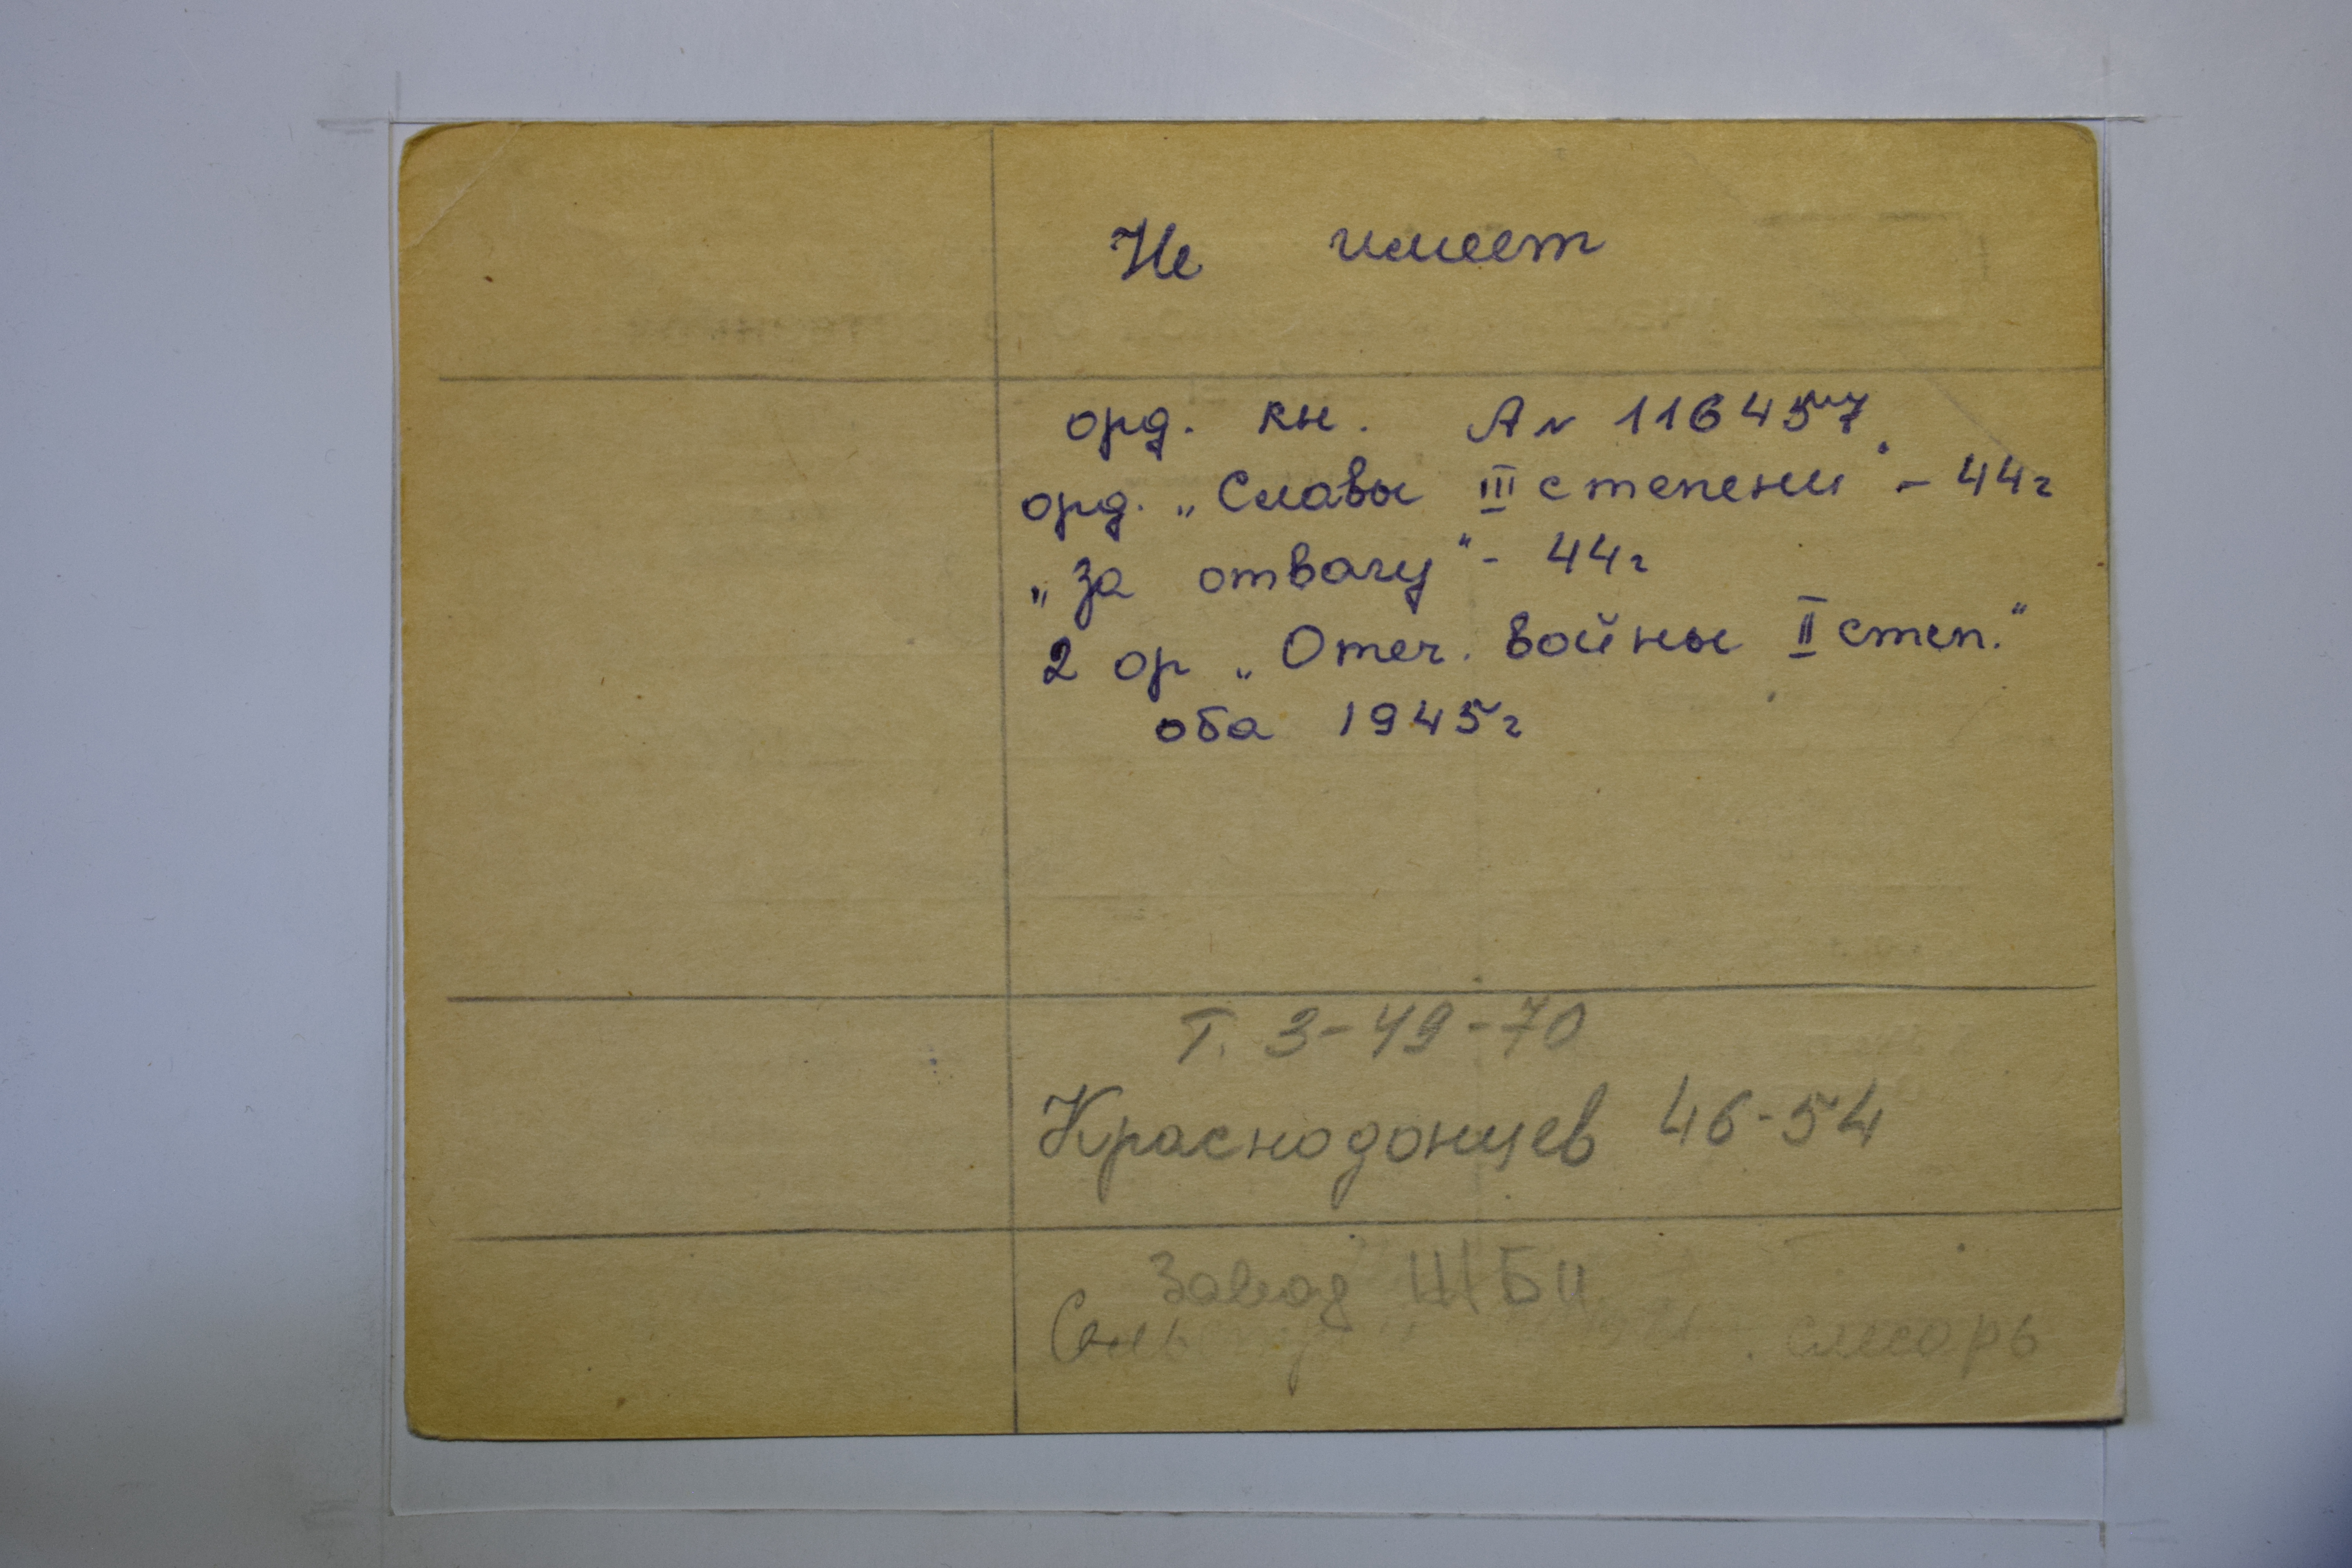 Не имеет
орд. кн. А № 116457
орд. „Славы III степени" - 44г
„за отвагу" - 44г
2 ор „Отеч. войны II степ."
оба 1945г
Т. 3-49-70
Краснодонцев 46-54
Завод ЖБИ
слесарь